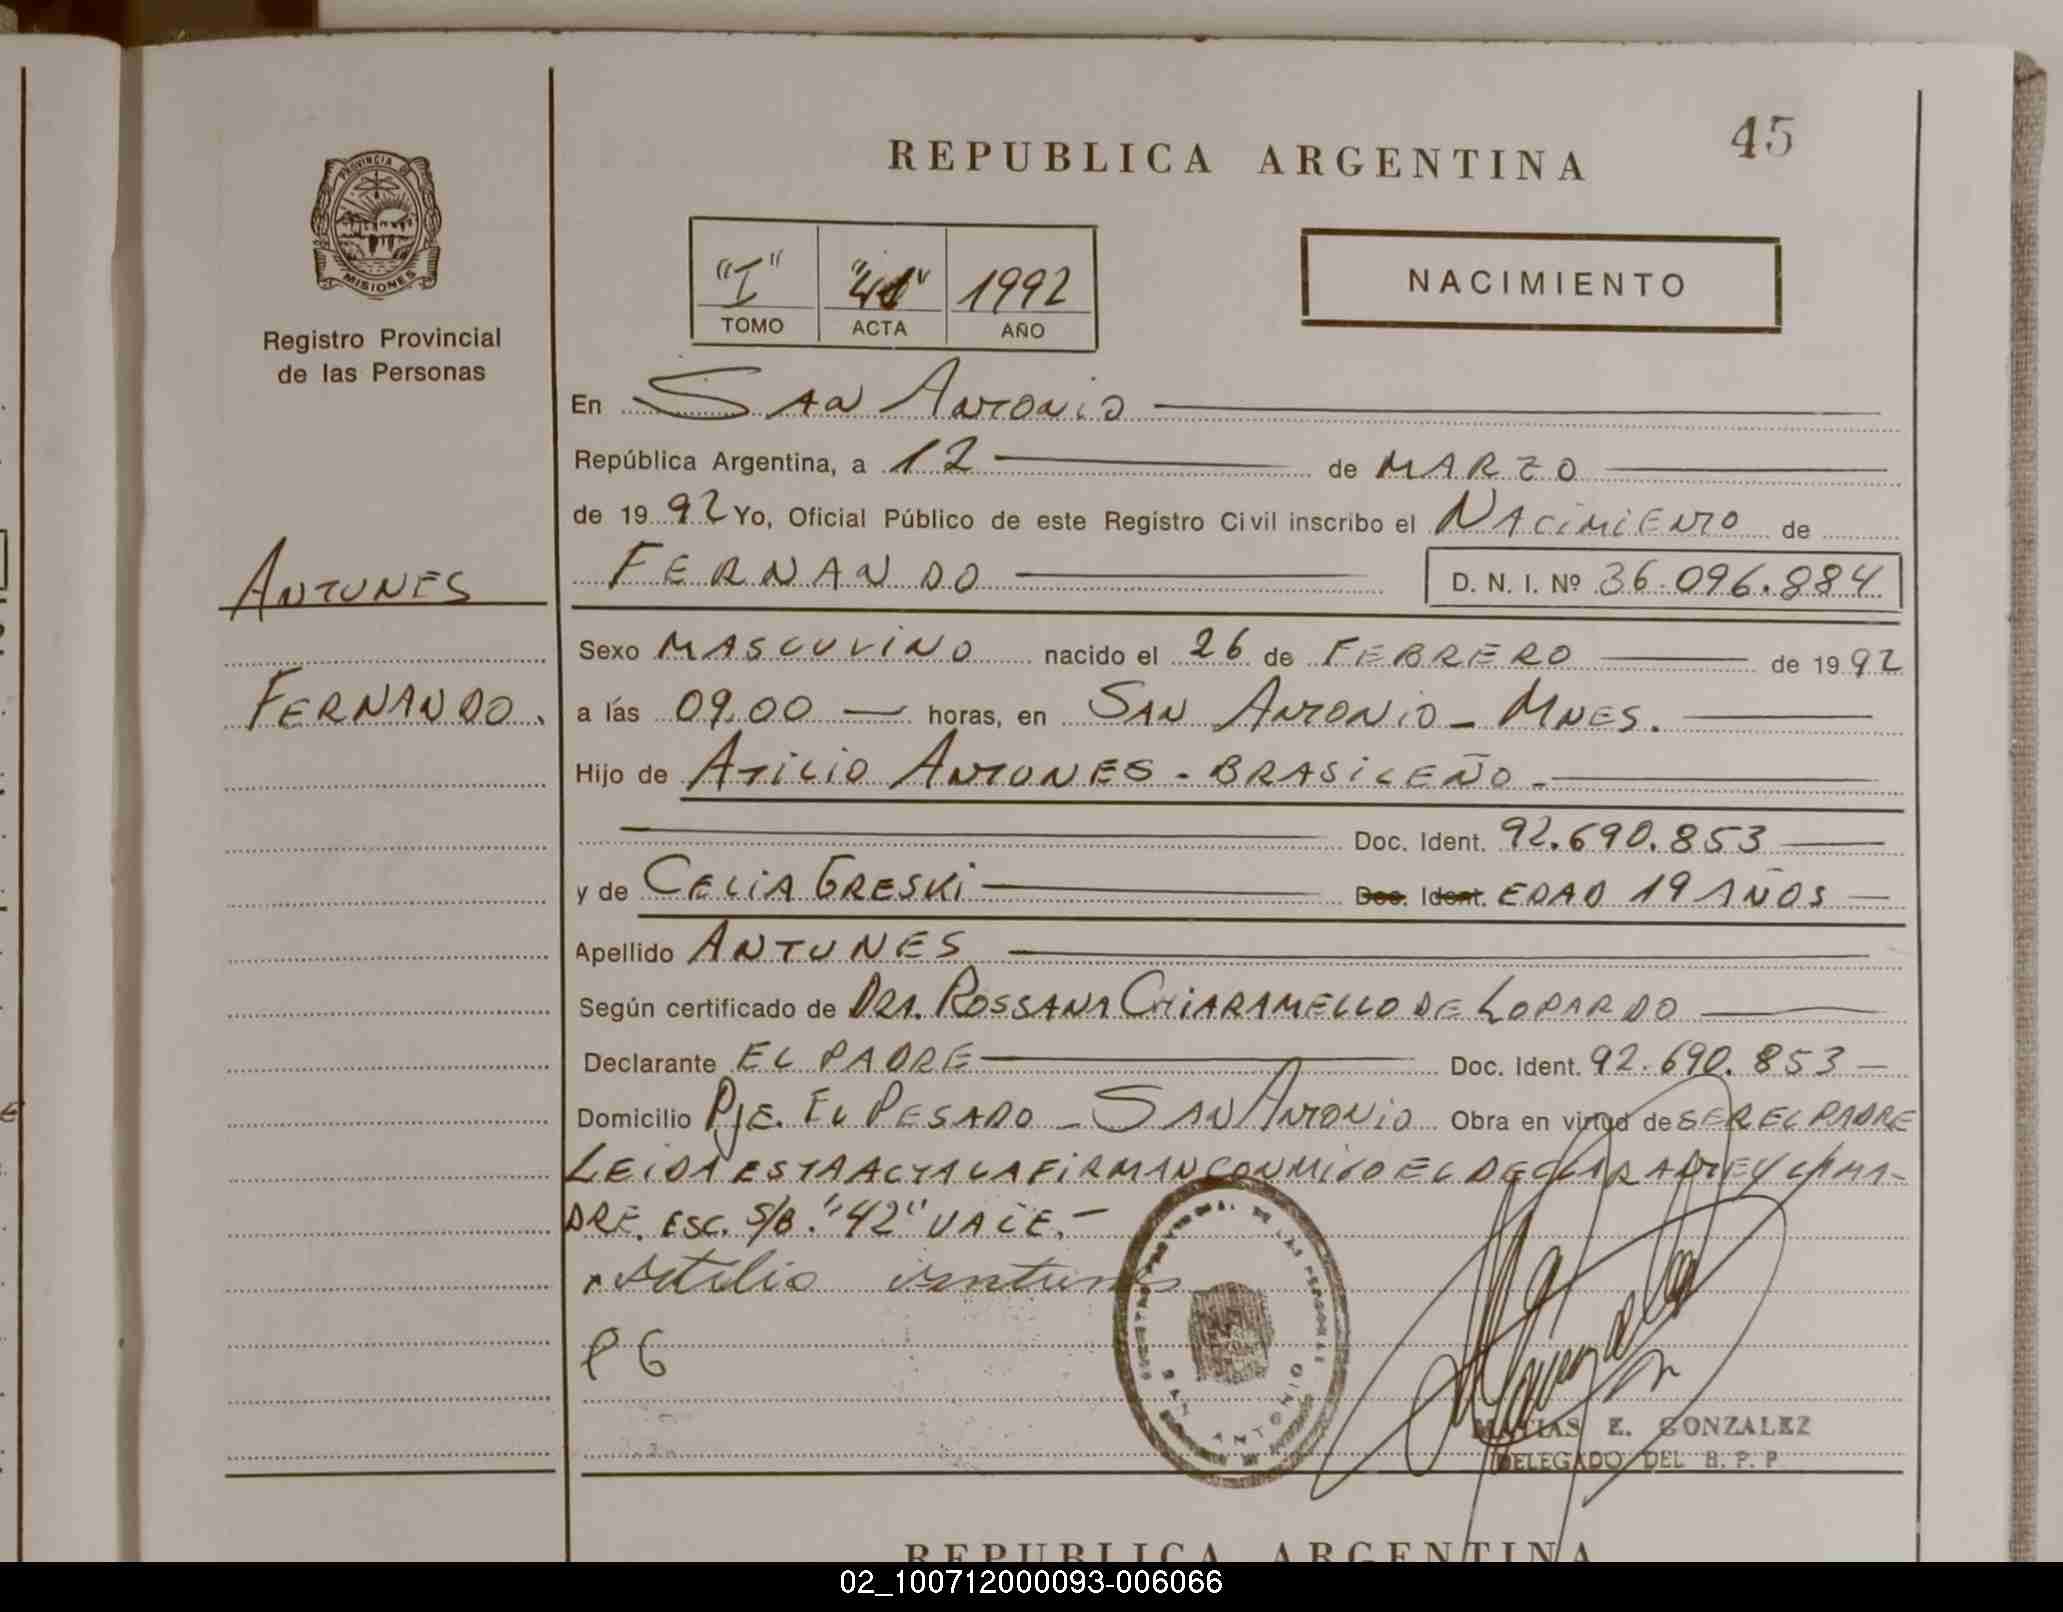 45
REPUBLICA ARGENTINA
PROVINCIA
MISIONES
Registro Provincial
de las Personas
"I" 1992
TOMO ACTA AÑO
NACIMIENTO
En SAN ANTONIO
República Argentina, a 12 de MARZO
de 1992 Yo, Oficial Público de este Registro Civil inscribo el NACIMIENTO de
FERNANDO D. N. I. Nº 36.096.884
ANTUNES
FERNANDO.
Sexo MASCULINO nacido el 26 de FEBRERO de 1992
a las 09.00 horas, en SAN ANTONIO - MNES.
Hijo de ATILIO ANTUNES - BRASILEÑO -
Doc. Ident. 92.690.853
y de CELIA GRESKI Doc. Ident. EDAD 19 AÑOS
Apellido ANTUNES
Según certificado de DRA. ROSSANA CHIARAMELLO DE LOPARDO
Declarante EL PADRE Doc. Ident. 92.690.853
Domicilio PJE. EL PESADO - SAN ANTONIO Obra en virtud de SER EL PADRE
LEIDA ESTA ACTA LA FIRMAN CONMIGO EL DECLARANTE Y LA MA-
DRE. ESC. S/B. "42" VALE.-
Atilio antunes
P G
SAN ANTONIO
MATIAS E. GONZALEZ
DELEGADO DEL R. P. P
REPUBLICA ARGENTINA
02_100712000093-006066